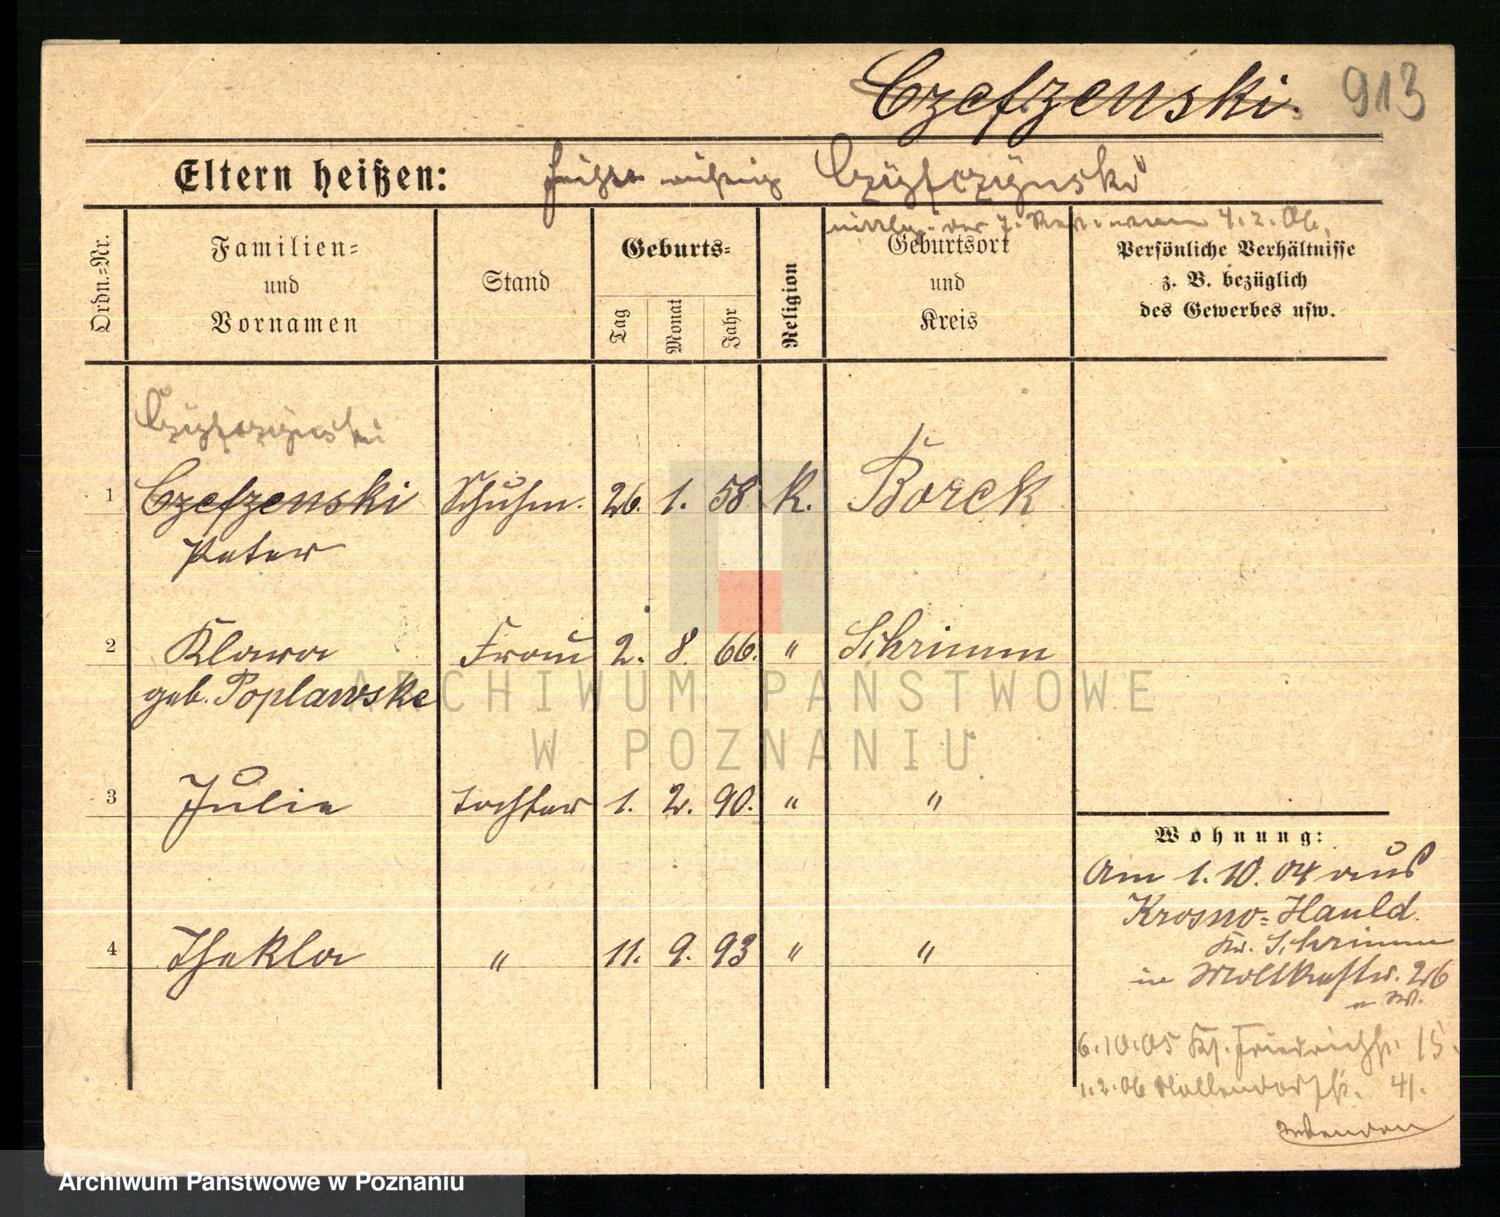 Czeszenski. 913
Eltern heißen: heißt richtig Czyszczynski
mittlg. der 4.2.06.
Ordn.-Nr.
Familien-
und
Vornamen
Stand
Geburts-
Tag
Monat
Jahr
Religion
Geburtsort
und
Kreis
Persönliche Verhältnisse
z. B. bezüglich
des Gewerbes usw.
Czyszczynski
1 Czeszenski Schuhm. 26. 1. 58 K. Borek
Peter
2 Klara Frau 2. 8. 66. " Schrimm
geb. Poplawske
3 Julie Tochter 1. 2. 90. " "
4 Thekla " 11. 9. 93 " "
Wohnung:
Am 1.10.04 aus
Krosno-Hauld.
Kr. Schrimm
in Moltkestr. 26
6.10.05 Friedrichstr. 15.
1.2.06 Hollendorfstr. 41.
ARCHIWUM PAŃSTWOWE
W POZNANIU
Archiwum Państwowe w Poznaniu